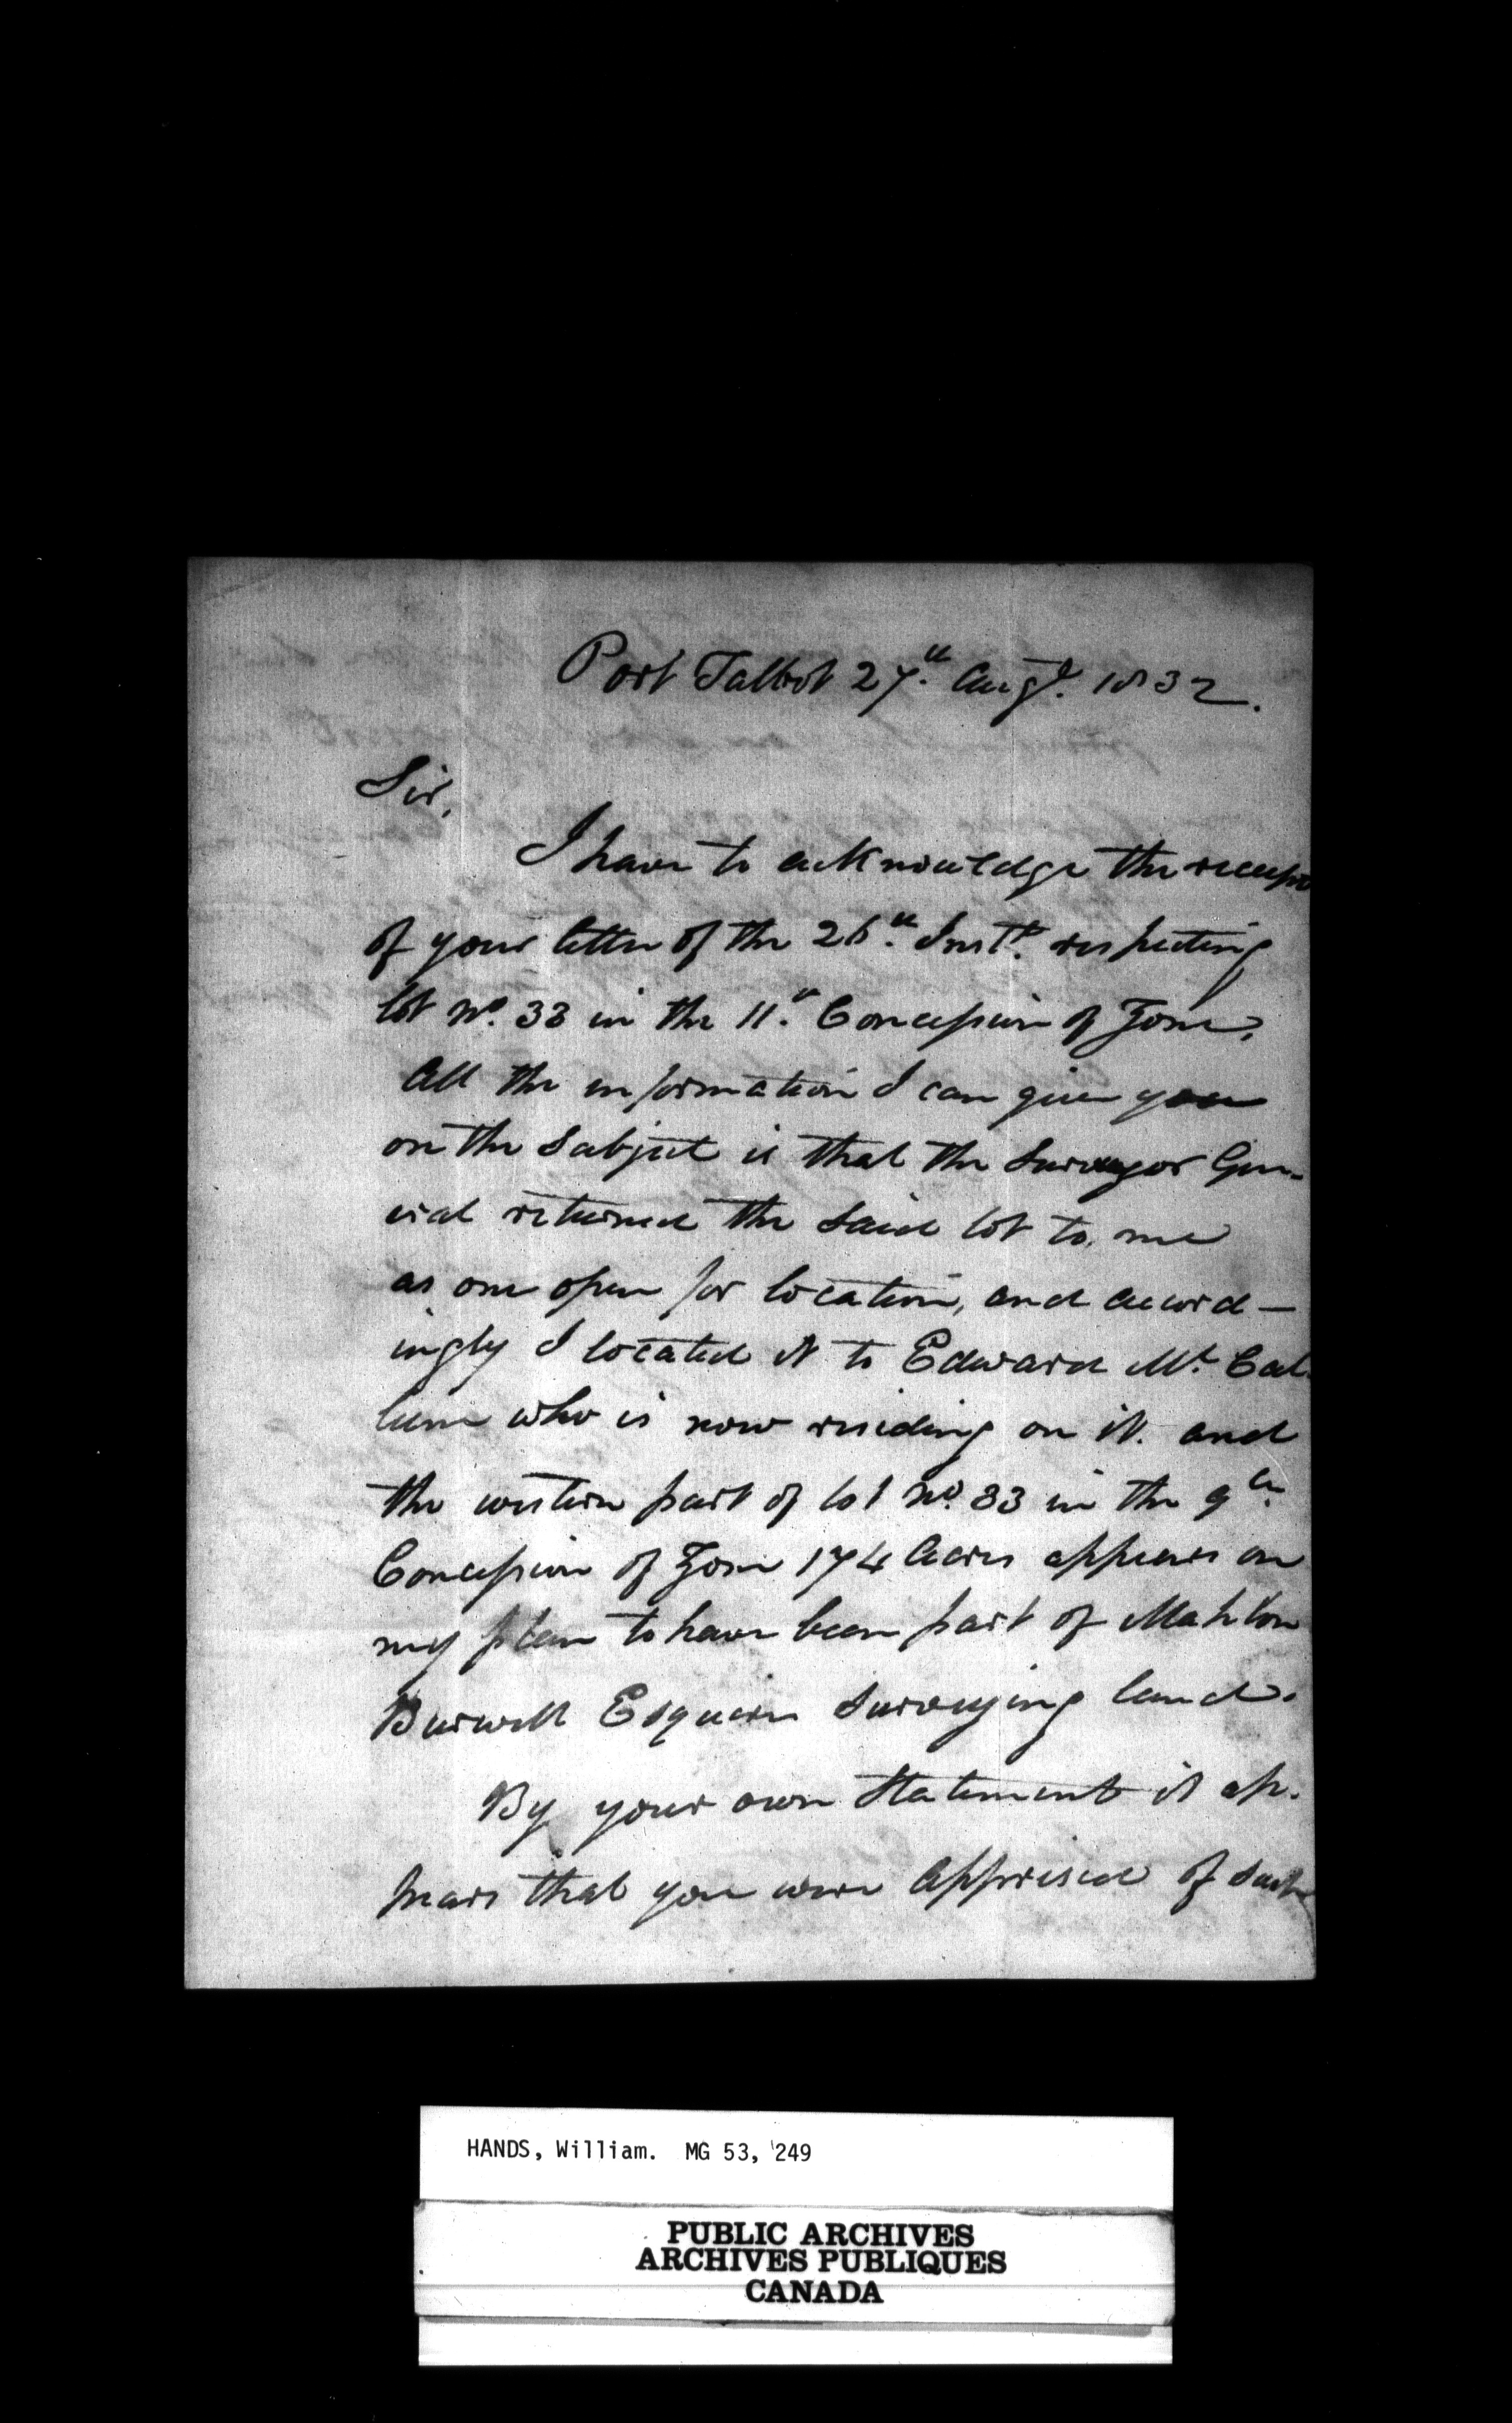 Port Talbot 27.th Augt. 1832.
Sir,
I have to acknowledge the receipt
of your letter of the 26.th Inst. respecting
lot No. 33 in the 11.th Concession of Zone,
All the information I can give you
on the Subject is that the Surveyor Gen-
eral returned the said lot to me
as one open for location, and accord-
ingly I located it to Edward Mc. Cal-
lum who is now residing on it. and
the western part of lot No. 33 in the 9th
Concession of Zone 174 Acres appears on
my plan to have been part of Mahlon
Burwell Esquire Surveying land.
By your own Statement it ap-
pears that you were apprised of such
HANDS, William. MG 53, 249
PUBLIC ARCHIVES
ARCHIVES PUBLIQUES
CANADA